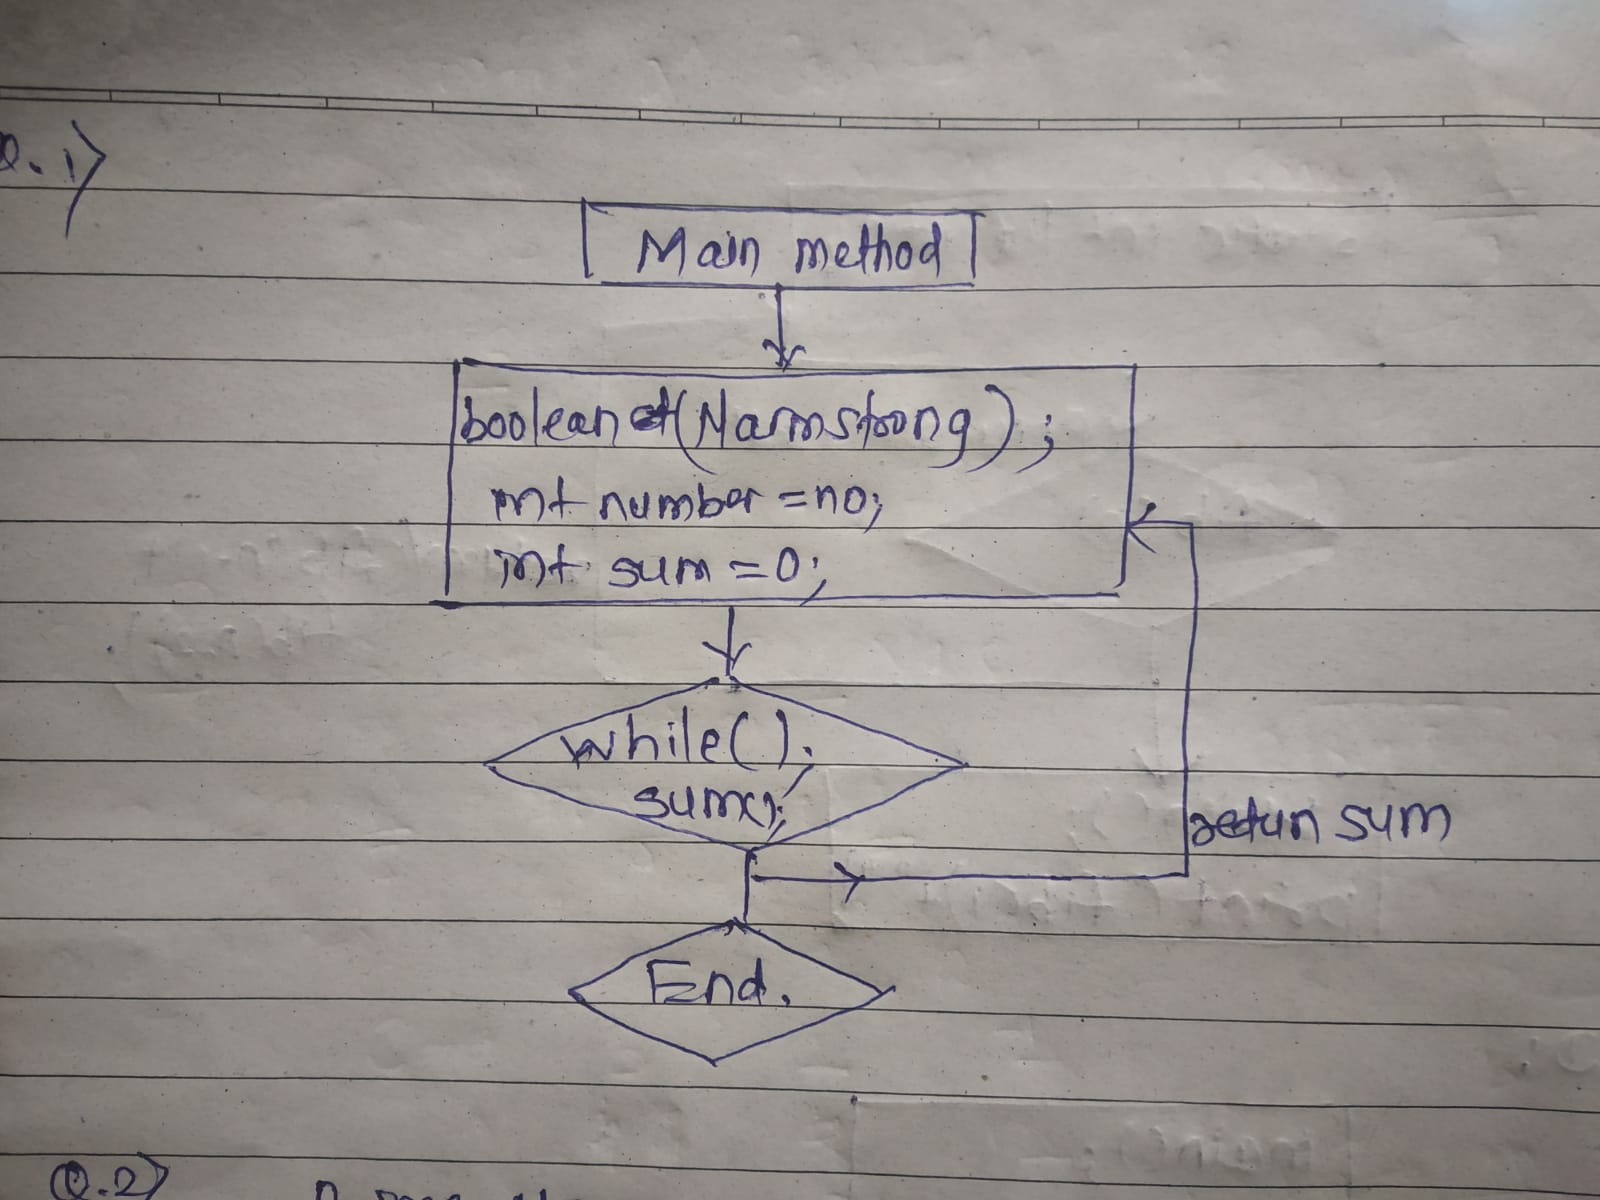 Q.1)
Main method
boolean (Narmstrong);
int number = no;
int sum = 0;
while();
sum();
retun sum
End.
Q.2)